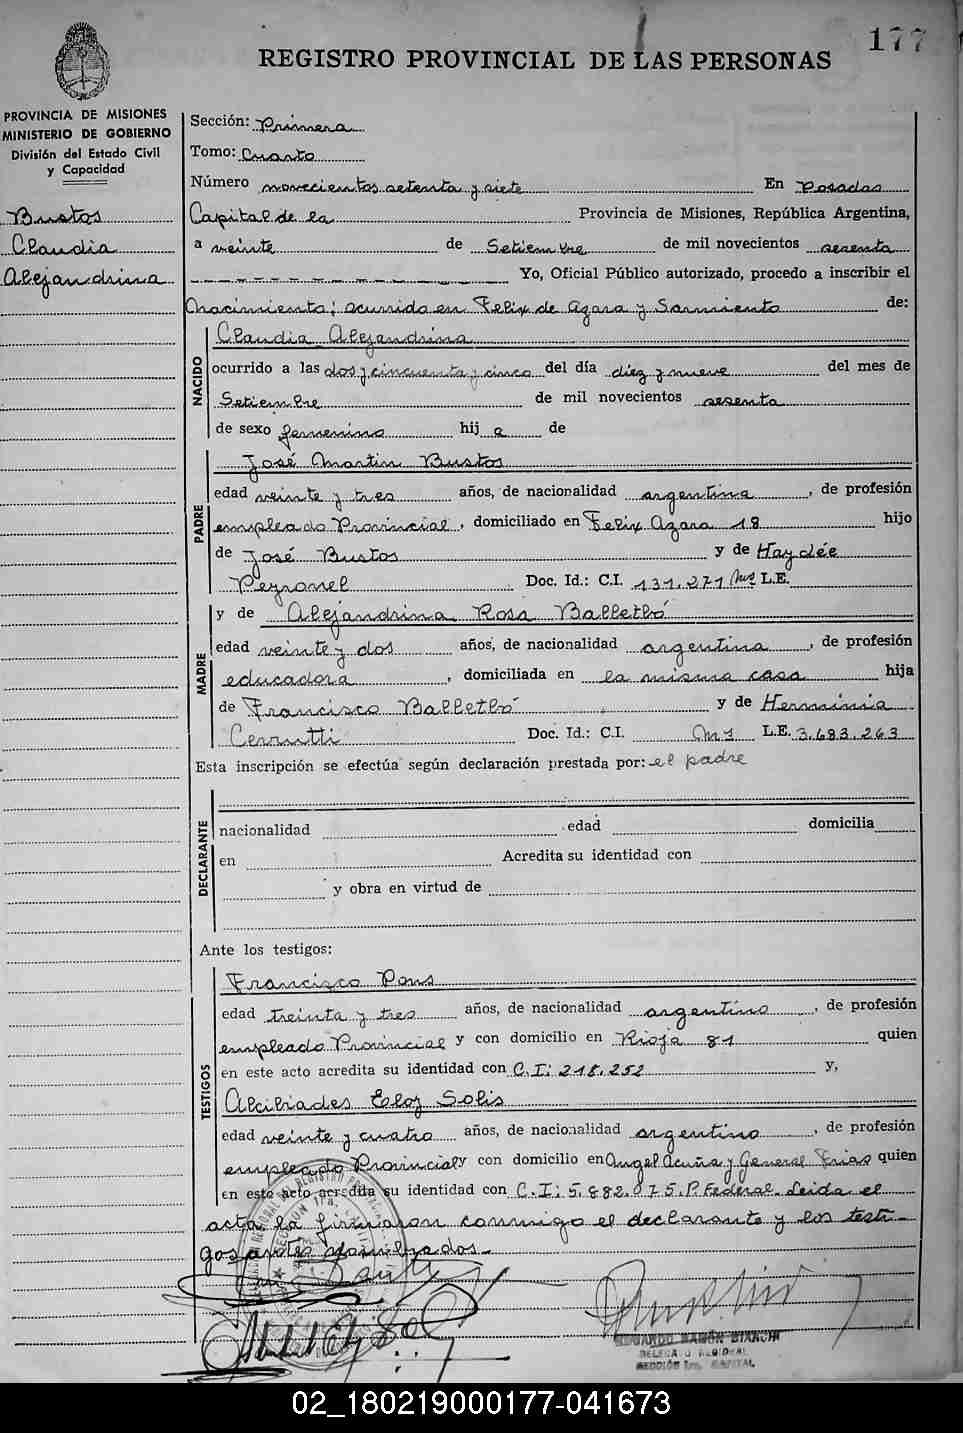 177
REGISTRO PROVINCIAL DE LAS PERSONAS
PROVINCIA DE MISIONES
MINISTERIO DE GOBIERNO
División del Estado Civil
y Capacidad
Bustos
Claudia
Alejandrina
Sección: Primera
Tomo: Cuarto
Número novecientos setenta y siete En Posadas
Capital de la Provincia de Misiones, República Argentina,
a veinte de Setiembre de mil novecientos sesenta
Yo, Oficial Público autorizado, procedo a inscribir el
Nacimiento; ocurrido en Felix de Azara y Sarmiento de:
NACIDO
Claudia Alejandrina
ocurrido a las dos y cincuenta y cinco del día diez y nueve del mes de
Setiembre de mil novecientos sesenta
de sexo femenino hij a de
PADRE
José Martin Bustos
edad veinte y tres años, de nacionalidad argentina, de profesión
empleado Provincial, domiciliado en Felix Azara 18 hijo
de José Bustos y de Haydée
Peyronel Doc. Id.: C.I. 131.271 Mns L.E.
MADRE
y de Alejandrina Rosa Balletbó
edad veinte y dos años, de nacionalidad argentina, de profesión
educadora, domiciliada en la misma casa hija
de Francisco Balletbó y de Herminia
Cerrutti Doc. Id.: C.I. Mns L.E. 3.683.263
Esta inscripción se efectúa según declaración prestada por: el padre
DECLARANTE
nacionalidad edad domicilia
en Acredita su identidad con
y obra en virtud de
Ante los testigos:
TESTIGOS
Francisco Pons
edad treinta y tres años, de nacionalidad argentino, de profesión
empleado Provincial y con domicilio en Rioja 81 quien
en este acto acredita su identidad con C.I: 218.252 y,
Alcibiades Eloy Solis
edad veinte y cuatro años, de nacionalidad argentino, de profesión
empleado Provincial y con domicilio en Angel Acuña y General Frias quien
en este acto acredita su identidad con C.I: 5.882.075.P.Federal. Leida el
acta, la firmaron conmigo el declarante y los testi-
gos antes nombrados.
EDGARDO RAMÓN BIANCHI
DELEGADO REGIONAL
SECCIÓN 1ra. CAPITAL
02_180219000177-041673